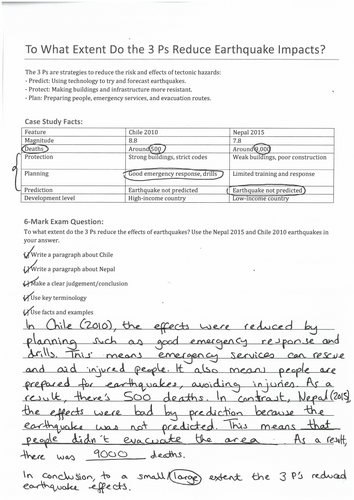 To What Extent Do the 3 Ps Reduce Earthquake Impacts?
The 3 Ps are strategies to reduce the risk and effects of tectonic hazards:
- Predict: Using technology to try and forecast earthquakes.
- Protect: Making buildings and infrastructure more resistant.
- Plan: Preparing people, emergency services, and evacuation routes.
Case Study Facts:
Feature Chile 2010 Nepal 2015
Magnitude 8.8 7.8
Deaths Around 500 Around 9,000
Protection Strong buildings, strict codes Weak buildings, poor construction
Planning Good emergency response, drills Limited training and response
Prediction Earthquake not predicted Earthquake not predicted
Development level High-income country Low-income country
6-Mark Exam Question:
To what extent do the 3 Ps reduce the effects of earthquakes? Use the Nepal 2015 and Chile 2010 earthquakes in
your answer.
Write a paragraph about Chile
Write a paragraph about Nepal
Make a clear judgement/conclusion
Use key terminology
Use facts and examples
In Chile (2010), the effects were reduced by
planning such as good emergency response and
drills. This means emergency services can rescue
and aid injured people. It also means people are
prepared for earthquakes, avoiding injuries. As a
result, there's 500 deaths. In contrast, Nepal (2015),
the effects were bad by prediction because the
earthquake was not predicted. This means that
people didn't evacuate the area. As a result,
there was 9000 deaths.
In conclusion, to a small/large extent the 3 P's reduced
earthquake effects.